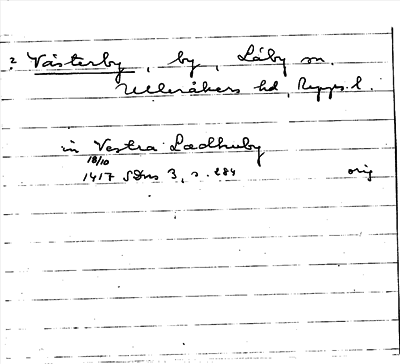 ? Västerby, by, Låby sn.
Ulleråkers hd, Upps. l.
in Vestra Ladhuby
18/10
1417 SDns 3, s. 284 orig